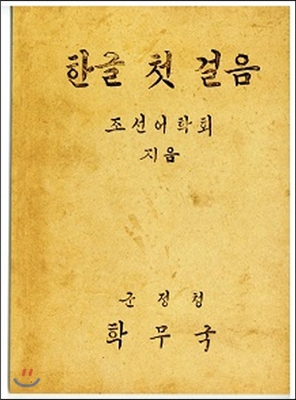 한글 첫 걸음
조선어학회
지음
군정청
학무국